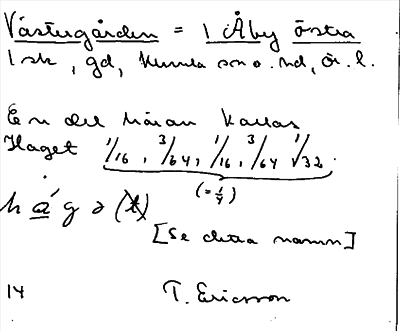 Västergården = 1 Åby östra
1 sk, gd, Kumla sn o. hd, Ör. l.
En del häran kallas
Haget 1/16, 3/64, 1/16, 3/64 1/32.
(= 1/4)
h á g ə (t)
[Se detta namn]
14 T. Ericsson